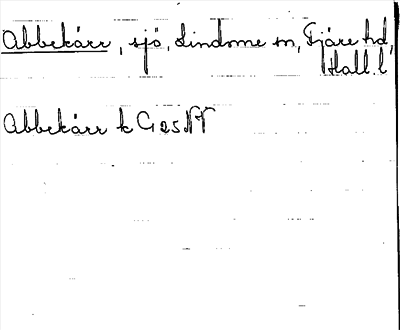 Abbekärr, sjö, Lindome sn, Fjäre hd,
Hall. l
Abbekärr k G 25 NV